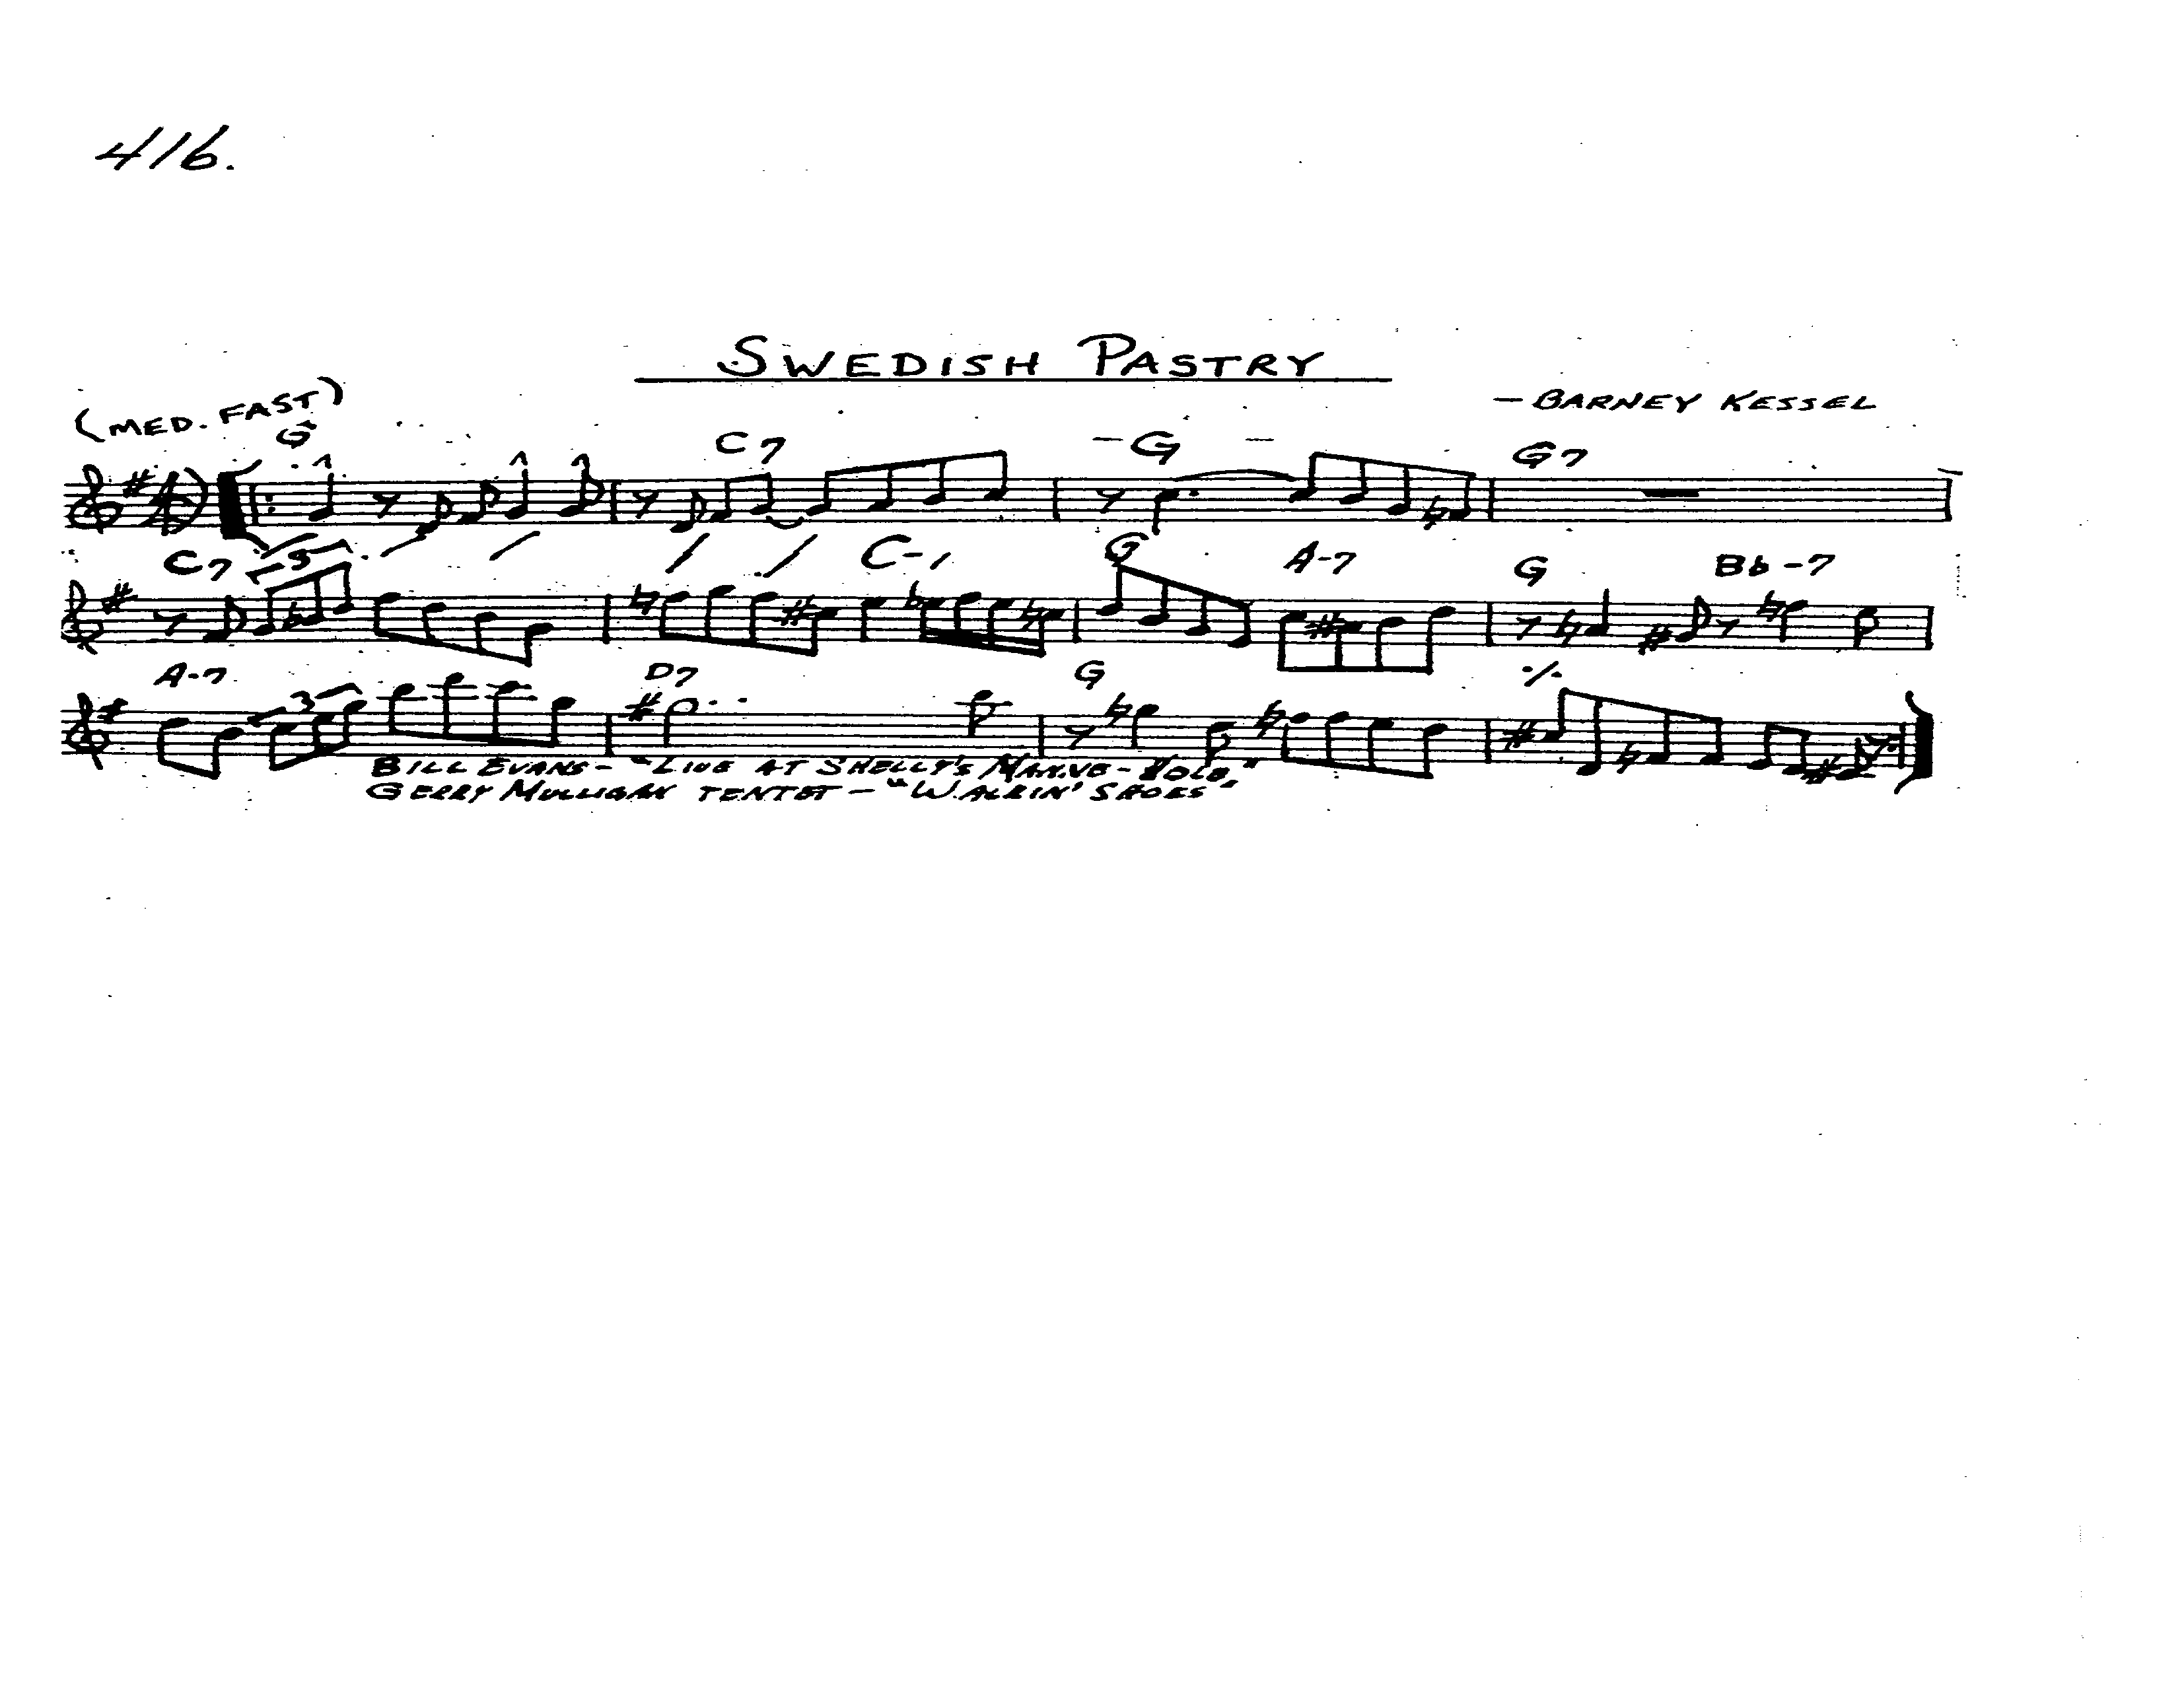 416.
SWEDISH PASTRY
(MED. FAST)
- BARNEY KESSEL
G C7 G G7
C7 3 C-7 G A-7 G Bb-7
A-7 3 D7 G
BILL EVANS - "LIVE AT SHELLY'S MANNE-HOLE"
GERRY MULLIGAN TENTET - "WALKIN' SHOES"